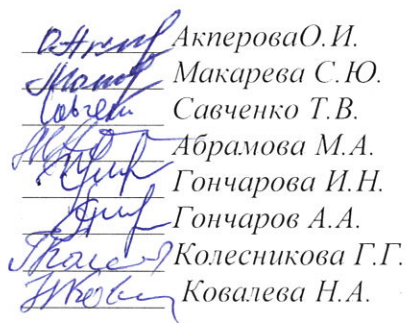 АкpероваО.И.
Макарева С.Ю.
Савченко Т.В.
Абрамова М.А.
Гончарова И.Н.
Гончаров А.А.
Колесникова Г.Г.
Ковалева Н.А.